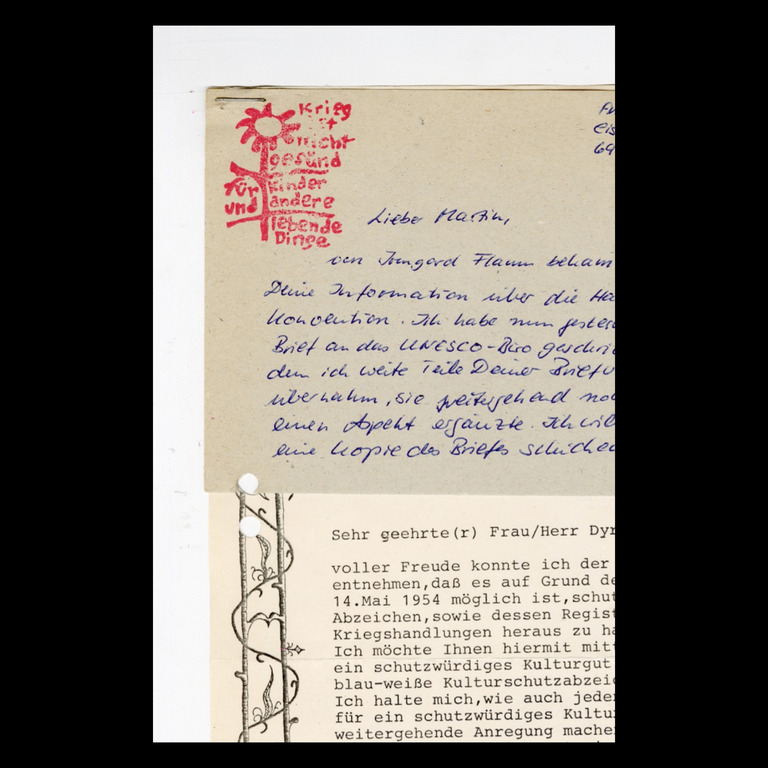 Krieg
ist
nicht
gesund
für Kinder
und andere
lebende
Dinge
Lieber Martin,
von Irmgard Flamm bekam
Deine Information über die Ha
Konvention. Ich habe nun gester
Brief an das UNESCO-Büro geschri
dem ich weite Teile Deiner Briefv
übernahm, sie weitergehend noc
einen Aspekt ergänzte. Ich wil
eine Kopie des Briefes schicken
Sehr geehrte(r) Frau/Herr Dyr
voller Freude konnte ich der
entnehmen,daß es auf Grund de
14.Mai 1954 möglich ist,schut
Abzeichen,sowie dessen Regist
Kriegshandlungen heraus zu ha
Ich möchte Ihnen hiermit mitt
ein schutzwürdiges Kulturgut
blau-weiße Kulturschutzabzeic
Ich halte mich,wie auch jeden
für ein schutzwürdiges Kultu
weitergehende Anregung mache